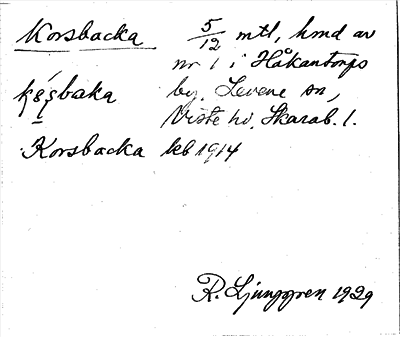 Korsbacka 5/12 mtl, hmd av
nr 1 i Håkantorps
by, Levene sn,
Viste hd, Skarab. l.
Korsbacka kb 1914
R. Ljunggren 1929